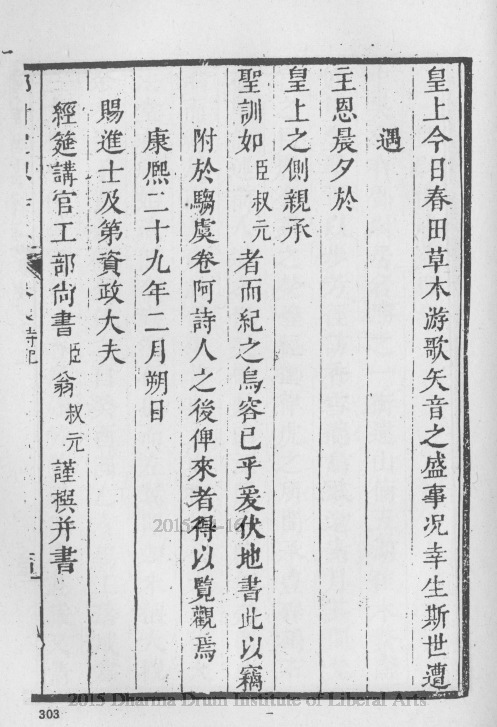 皇上今日春田草木游歌矢音之盛事况幸生斯世遭
遇
主恩晨夕於
皇上之側親承
聖訓如臣叔元者而紀之烏容已乎爰伏地書此以竊
附於騶虞卷阿詩人之後俾來者得以覽觀焉
康熈二十九年二月朔日
賜進士及第資政大夫
經筵講官工部尙書臣翁叔元謹撰并書
303
2015 Dharma Drum Institute of Liberal Arts